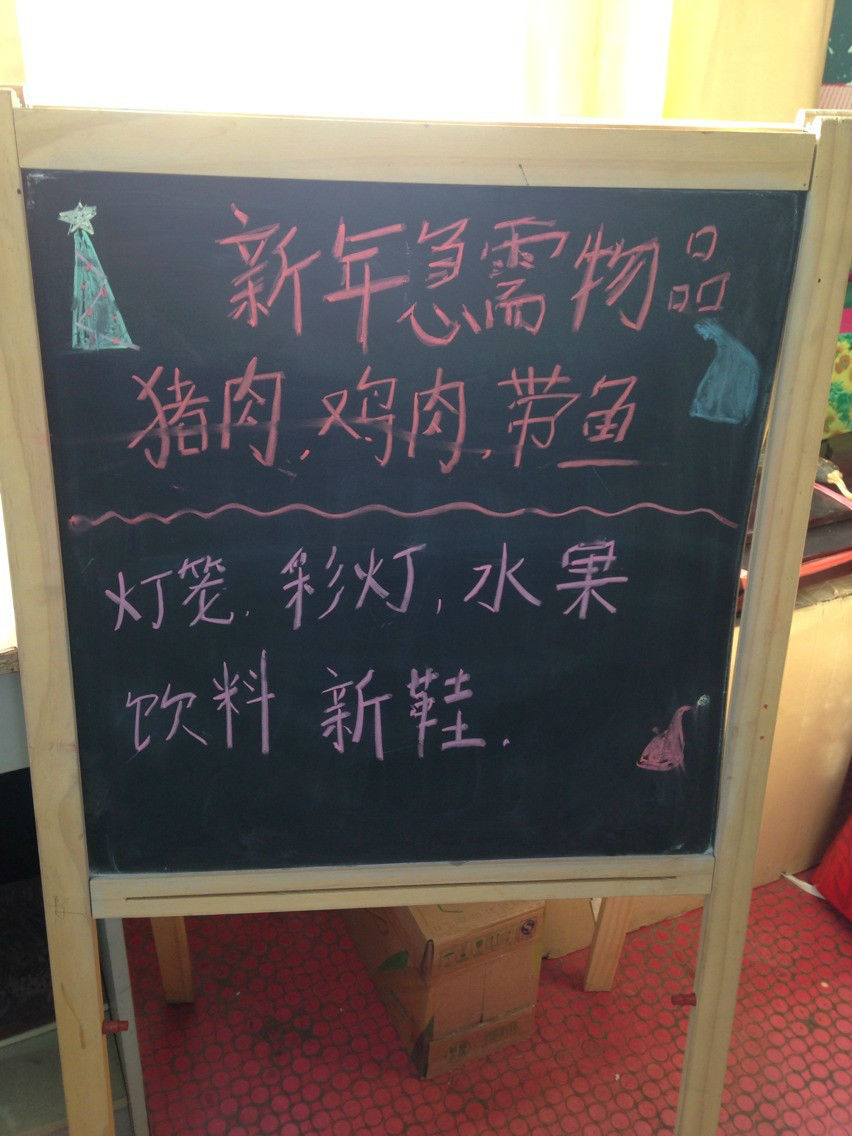 新年急需物品
猪肉,鸡肉,带鱼
灯笼,彩灯,水果
饮料 新鞋.